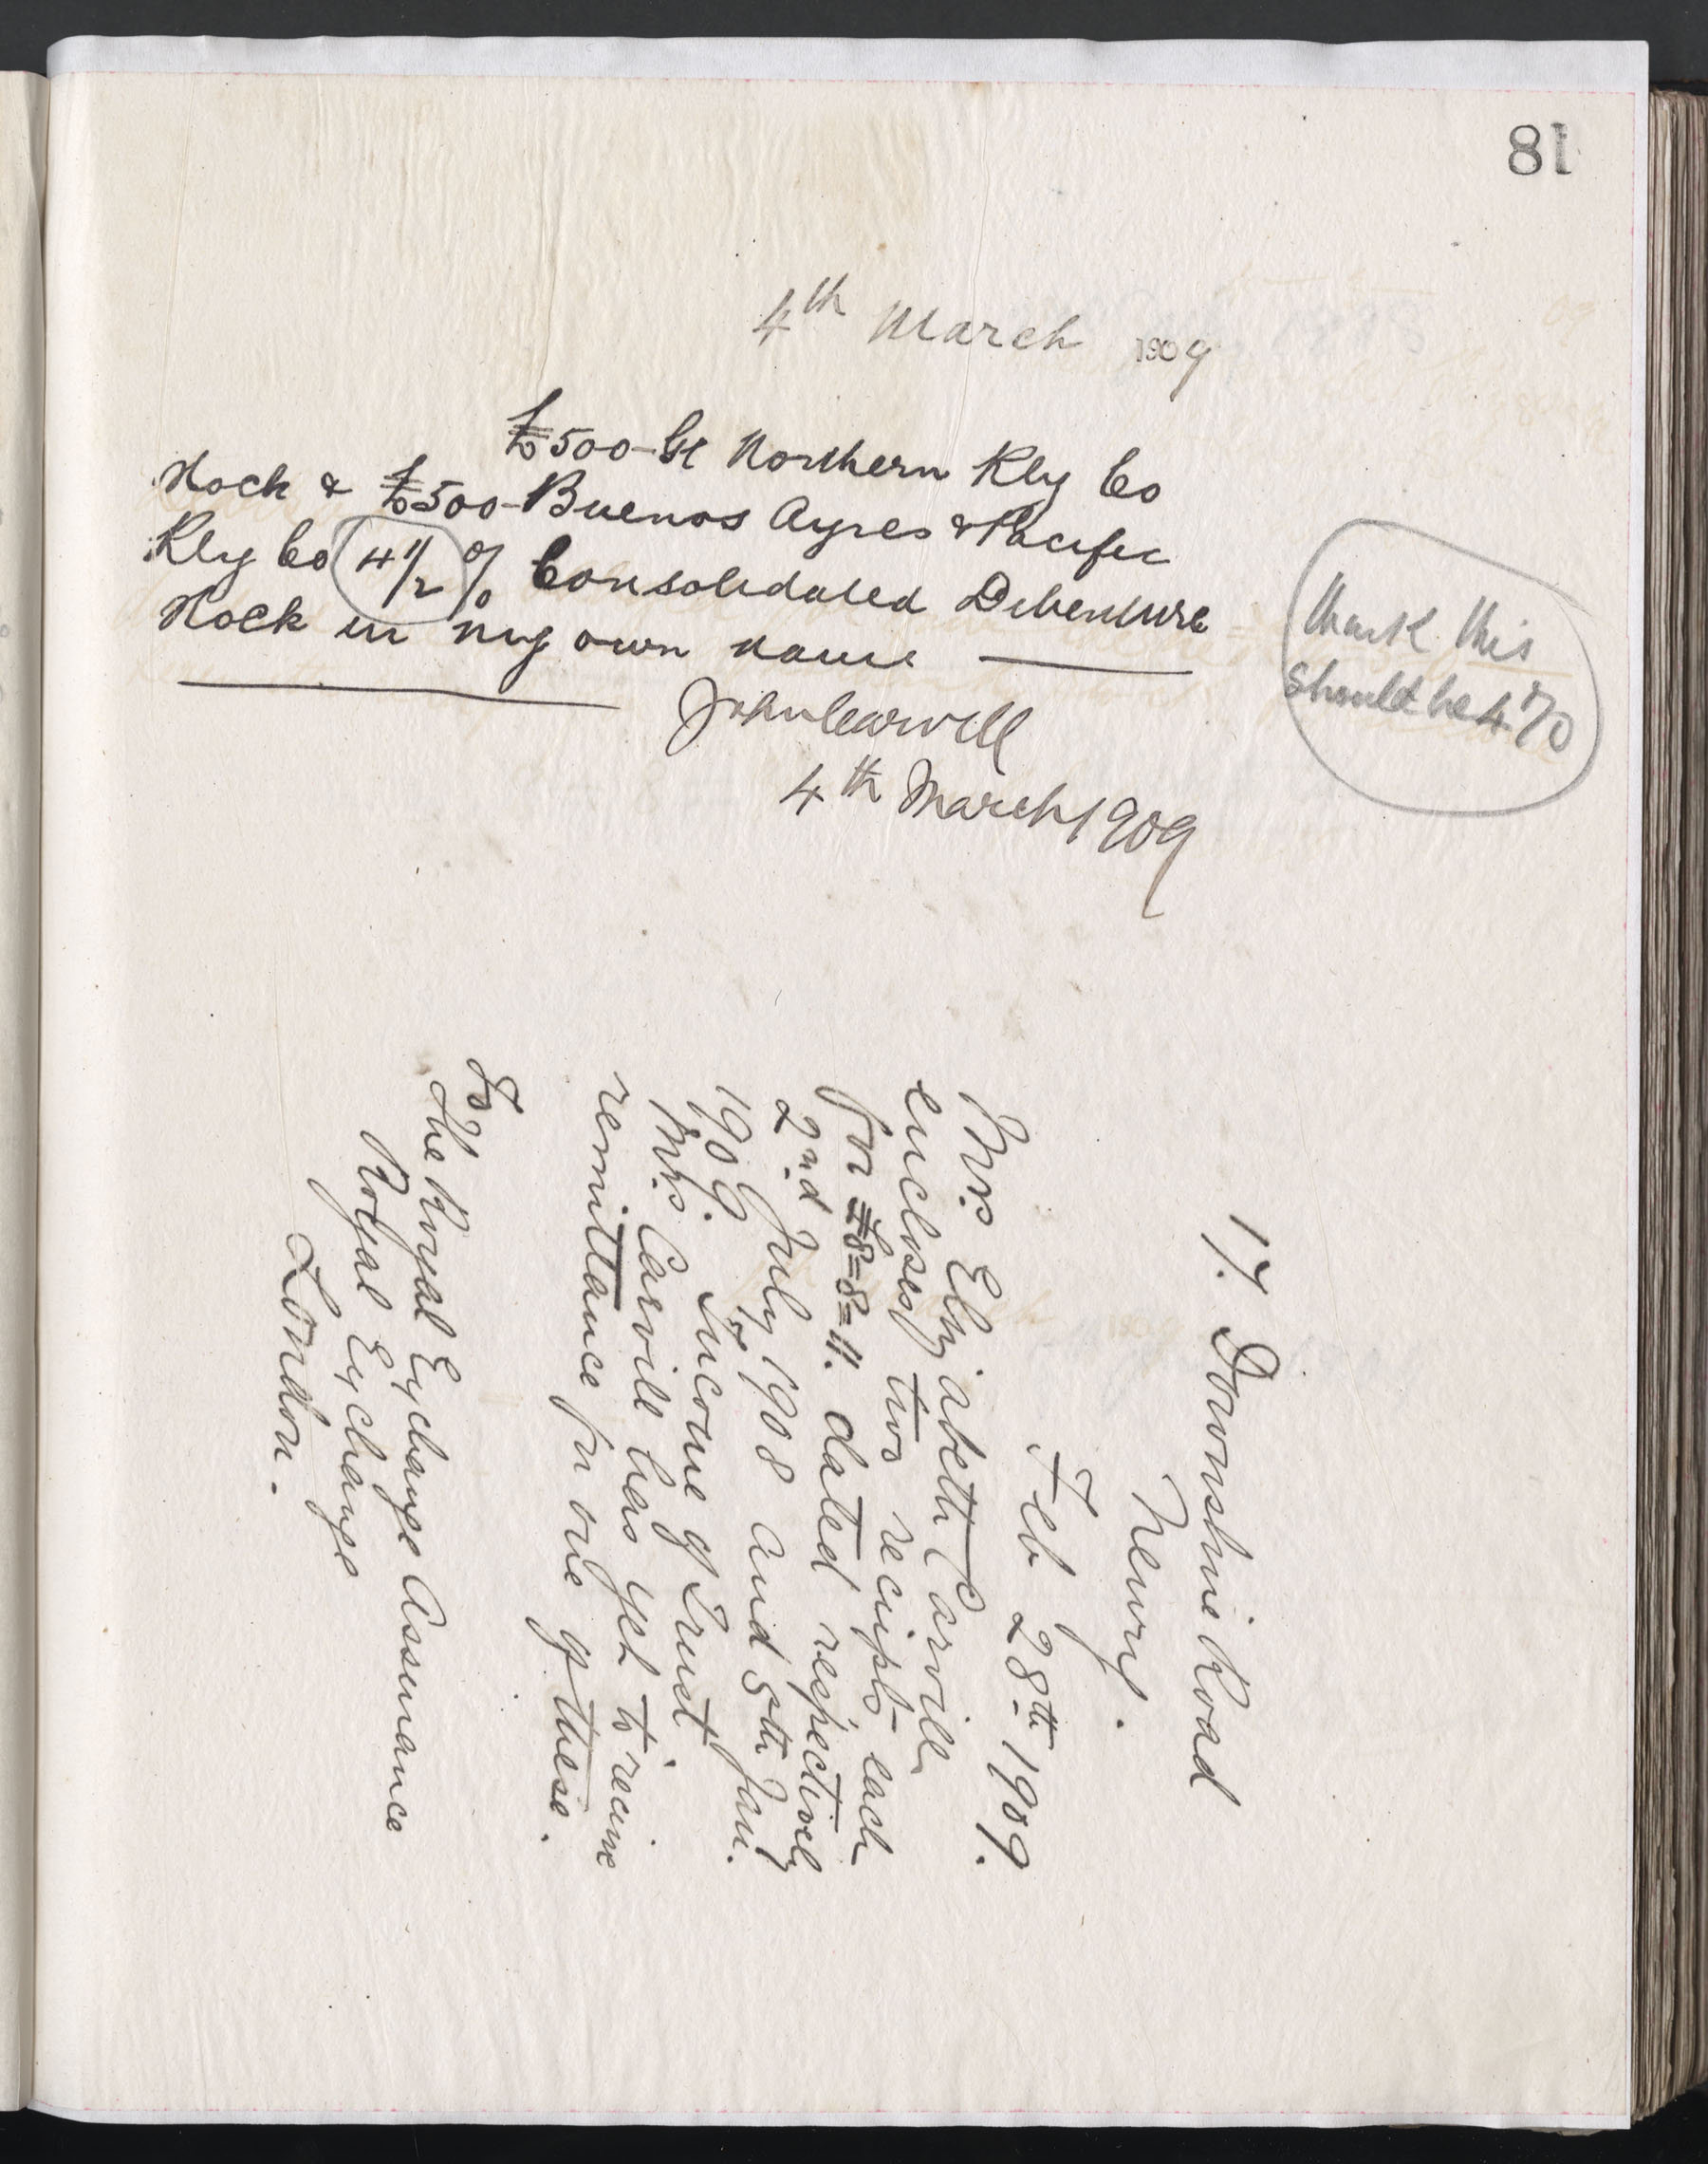 81
4th March 1909
£500-Gt Northern Rly Co
Stock & £500-Buenos Ayres & Pacific
Rly Co 4 1/2 % Consolidated Debenture
Stock in my own name
think this
should be 4 %
John Carvill
4th March 1909
17. Downshire Road
Newry.
Feb 28th 1909.
Mrs Elizabeth Carvill
encloses two reciepts each
for £8=8=11. dated respectively
2nd July 1908 and 5th Jan.
1909. Income of Trust.
Mrs. Carvill has yet to recieve
remittance for one of these.
To
The Royal Exchange Assurance
Royal Exchange
London.